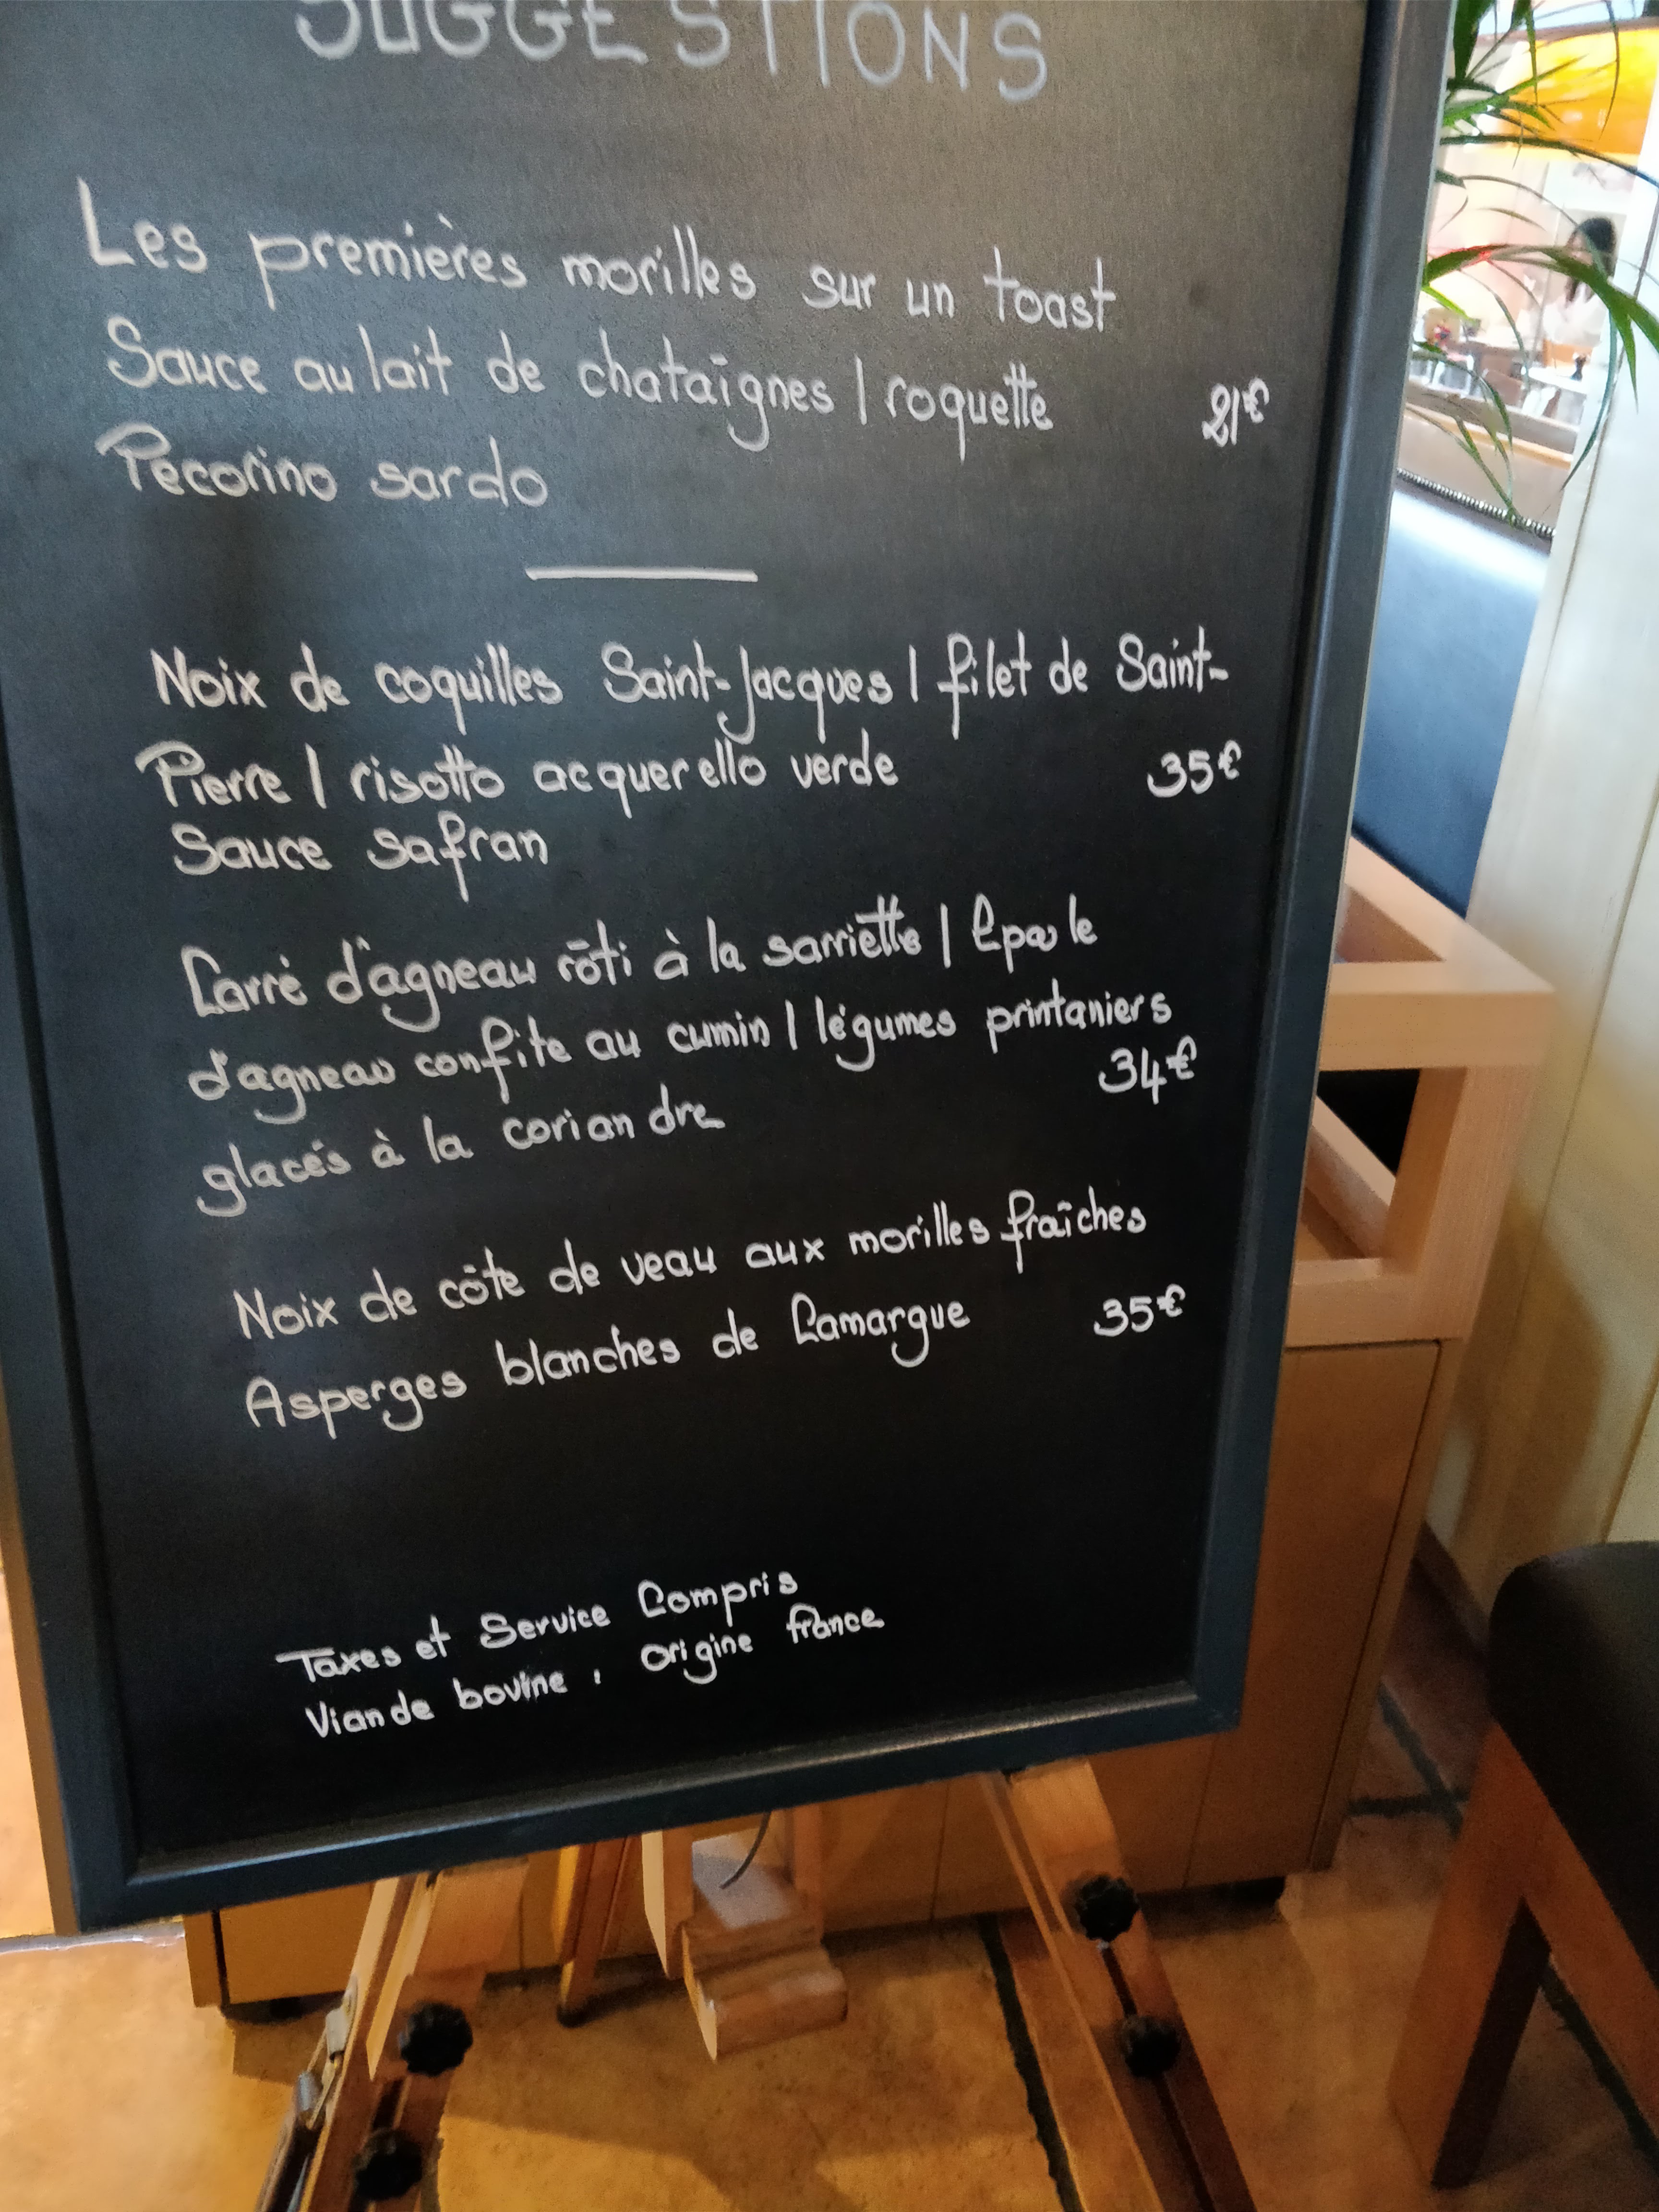 SUGGESTIONS
Les premières morilles sur un toast
Sauce au lait de chataîgnes | roquette 21€
Pecorino sardo
Noix de coquilles Saint-Jacques | filet de Saint-
Pierre | risotto acquerello verde 35€
Sauce safran
Carré d'agneau rôti à la sarriette | Epaule
d'agneau confite au cumin | légumes printaniers
glacés à la coriandre 34€
Noix de côte de veau aux morilles fraîches
Asperges blanches de Camargue 35€
Taxes et Service Compris
Viande bovine, origine france